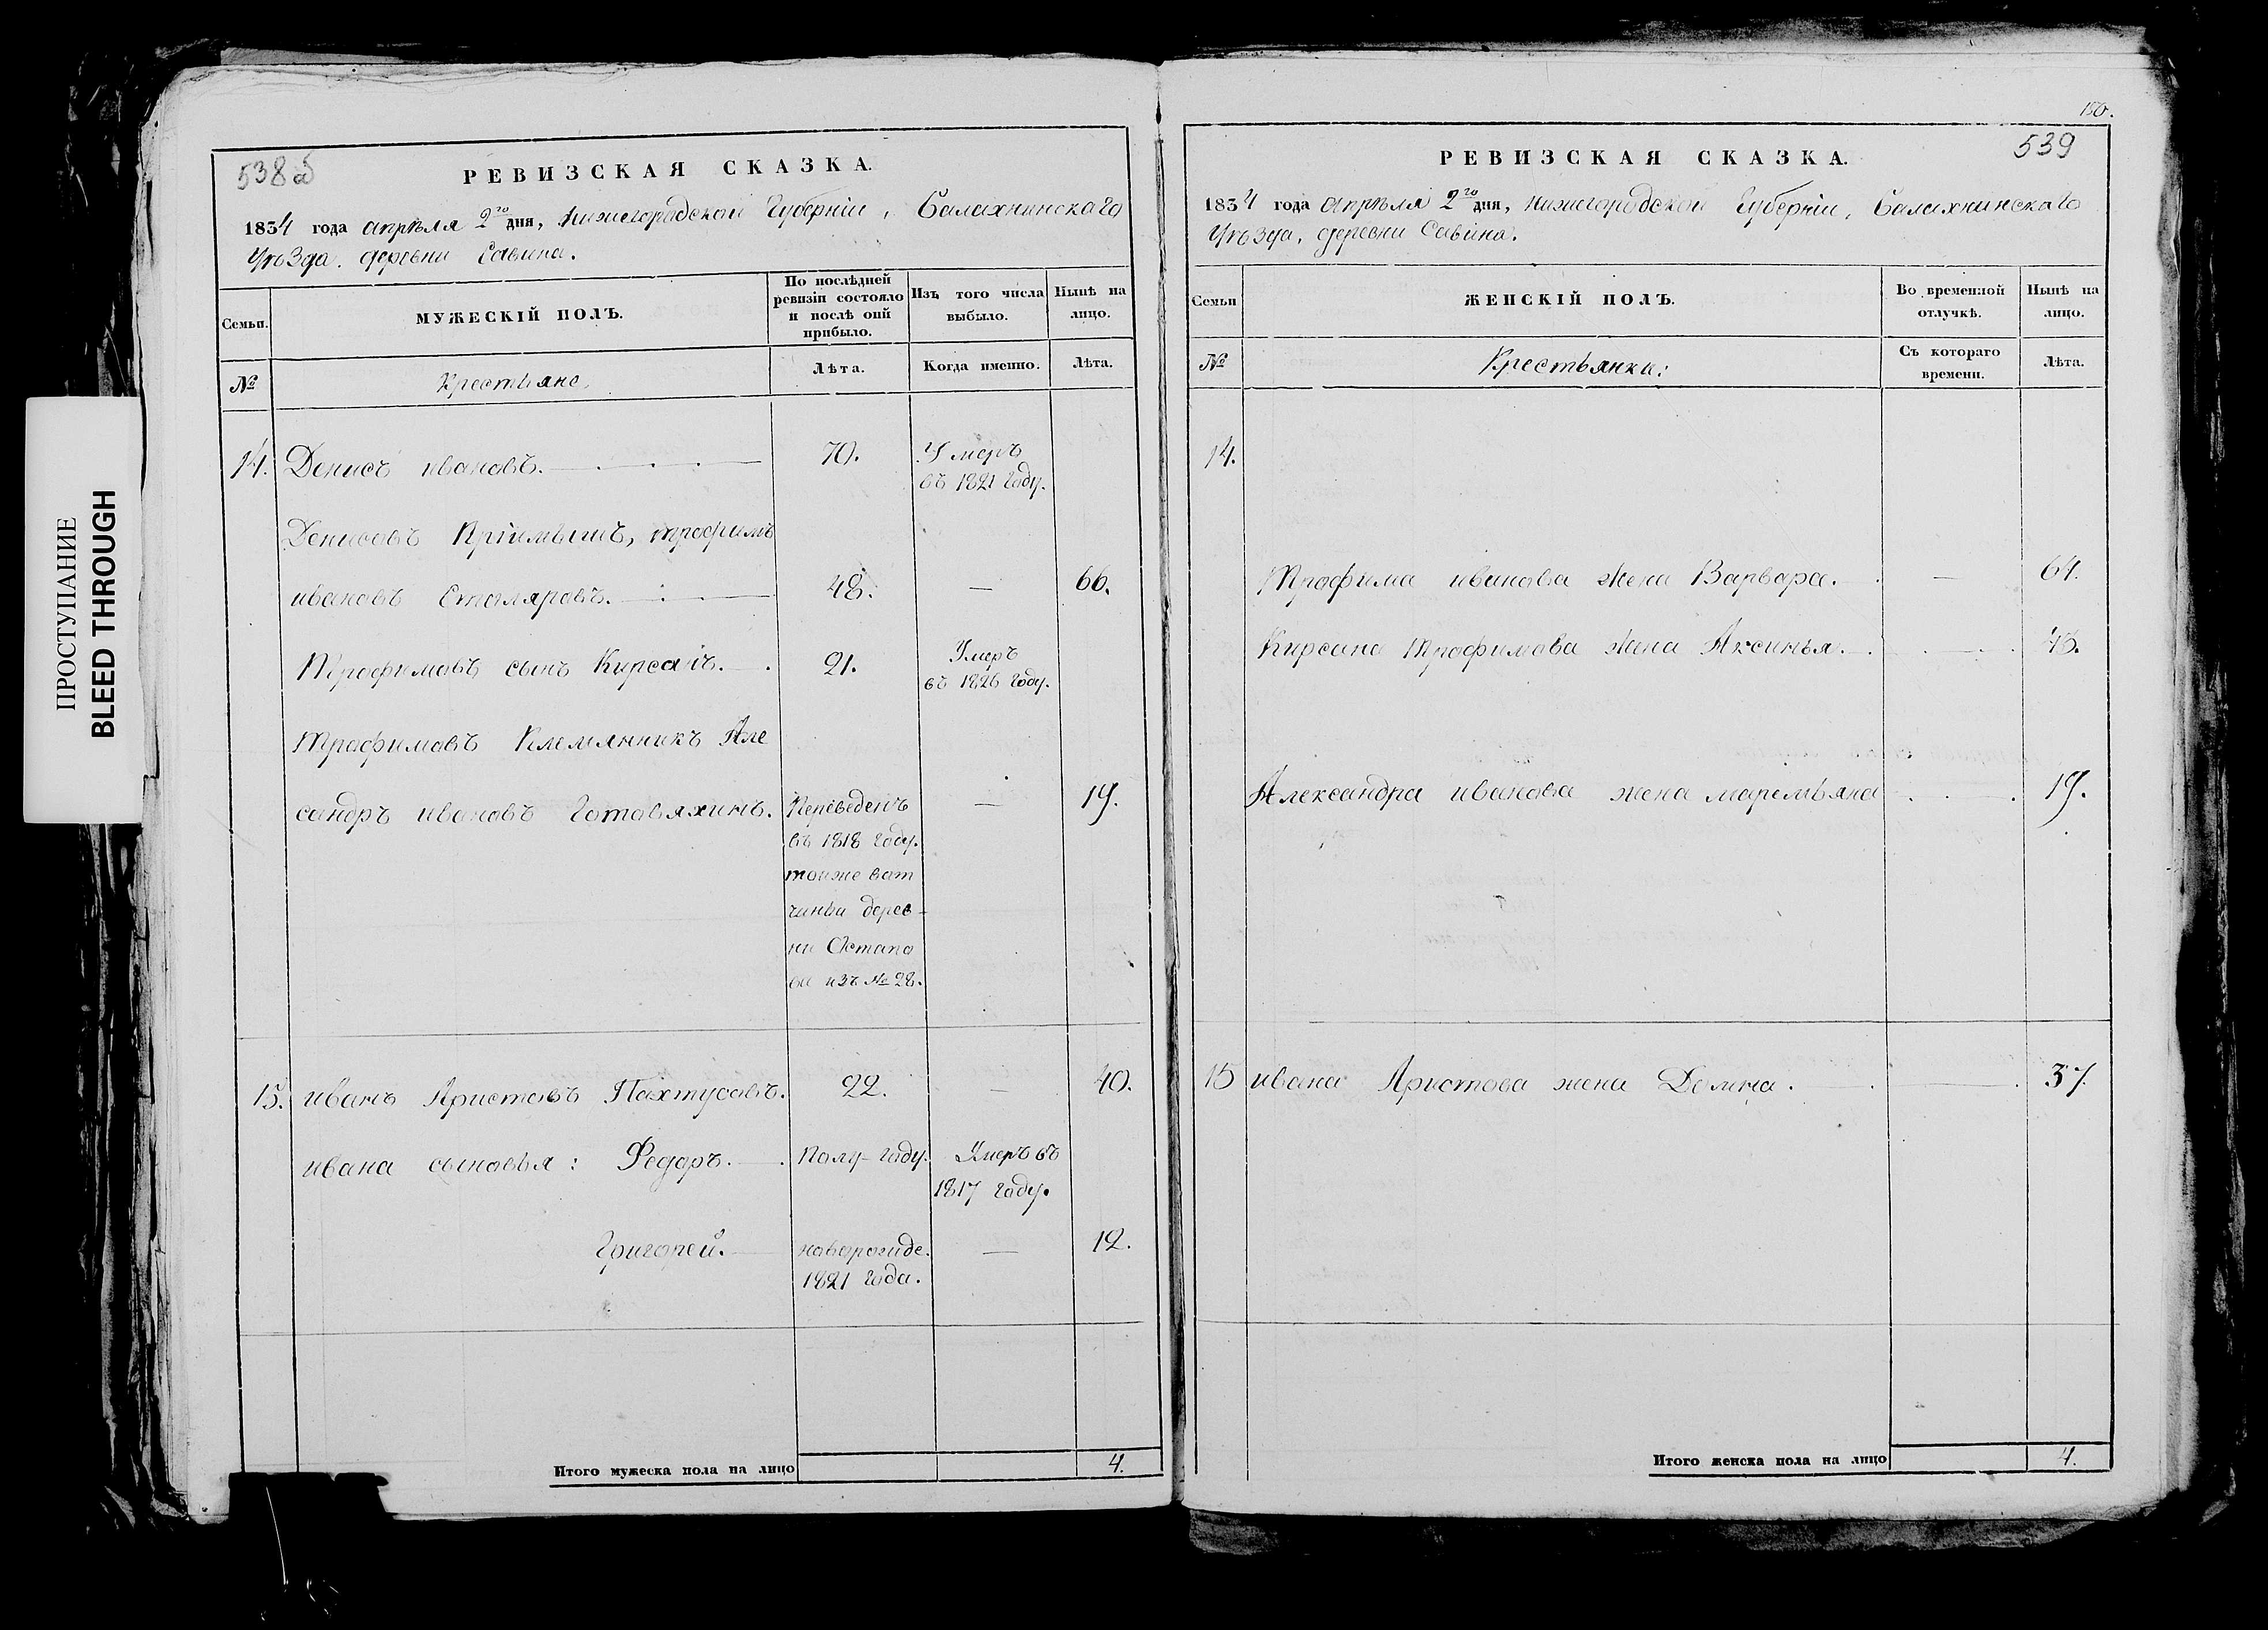 ПРОСТУПАНИЕ
BLEED THROUGH
538 об
РЕВИЗСКАЯ СКАЗКА.
1834 года апрѣля 2го дня, Нижегородской Губернiи, Балахнинскаго
Уѣзда. деревни Савина.
Семьи.
МУЖЕСКІЙ ПОЛЪ.
По послѣдней ревизіи состояло и послѣ оній прибыло.
Изъ того числа выбыло.
Нынѣ на лицо.
№
Крестьяне
Лѣта.
Когда именно.
Лѣта.
14. Денисъ ивановъ. 70. Умеръ
въ 1821 году.
Денисовъ Прiимышъ, трофимъ
ивановъ Столяровъ. 48. — 66.
Трофимовъ сынъ Кирсанъ. 21. Умеръ
въ 1826 году.
Трофимовъ Племянникъ Але
сандръ ивановъ Готовяхинъ. Переведенъ — 19.
въ 1818 году.
тойже вот
чины дерев-
ни Остапо
вы изъ № 28.
15. иванъ Аристовъ Пахтусовъ. 22. — 40.
ивана сыновья: Федоръ. Полу-году. Умеръ въ
1817 году.
Григорей. новорожде. — 12.
1821 года.
Итого мужеска пола на лицо 4.
150.
539
РЕВИЗСКАЯ СКАЗКА.
1834 года апрѣля 2го дня, Нижегородской Губернiи, Балахнинскаго
Уѣзда, деревни Савина.
Семьи
ЖЕНСКІЙ ПОЛЪ.
Во временной отлучкѣ.
Нынѣ на лицо.
№
Крестьянки:
Съ котораго времени.
Лѣта.
14.
Трофима иванова жена Варвара. — 64.
Кирсана Трофимова жена Аксинья. 43.
Александра иванова жена маремьяна 19.
15 ивана Аристова жена Домна. 37.
Итого женска пола на лицо 4.